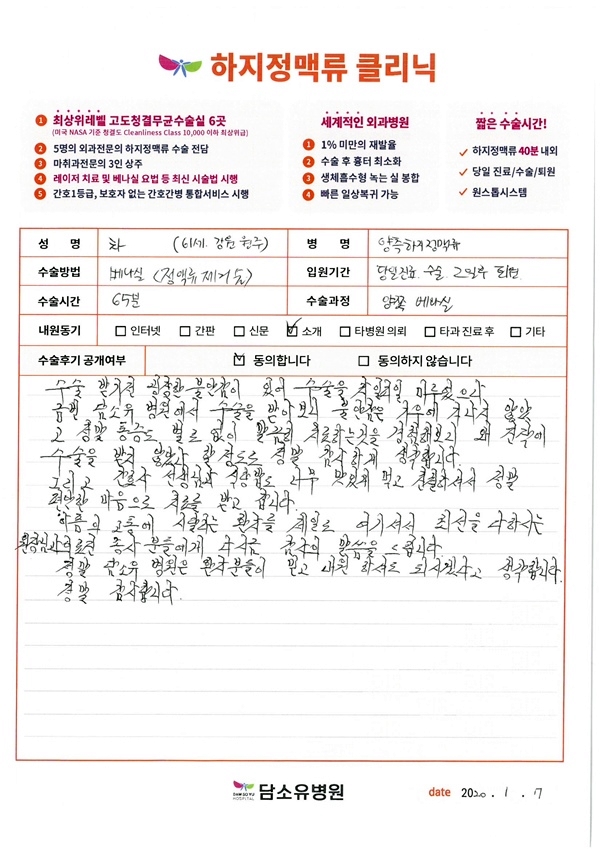 하지정맥류 클리닉
1 최상위레벨 고도청결무균수술실 6곳
(미국 NASA 기준 청결도 Cleanliness Class 10,000 이하 최상위급)
2 5명의 외과전문의 하지정맥류 수술 전담
3 마취과전문의 3인 상주
4 레이저 치료 및 베나실 요법 등 최신 시술법 시행
5 간호1등급, 보호자 없는 간호간병 통합서비스 시행
세계적인 외과병원
1 1% 미만의 재발율
2 수술 후 흉터 최소화
3 생체흡수형 녹는 실 봉합
4 빠른 일상복귀 가능
짧은 수술시간!
하지정맥류 40분 내외
당일 진료/수술/퇴원
원스톱시스템
성 명 (61세. 강원 원주) 병 명 양쪽하지정맥류
수술방법 베나실 (정맥류 제거술) 입원기간 당일진료. 수술
수술시간 65분 수술과정 양쪽 베나실
내원동기 인터넷 간판 신문 소개 타병원 의뢰 타과 진료 후 기타
수술후기 공개여부 동의합니다 동의하지 않습니다
수술 받기전 굉장한 불안감이 있어 수술을 차일피일 미루었으나
금번 담소유 병원에서 수술을 받아보니 불안감은 기우에 지나지 않았
고 정말 통증도 별로 없이 말끔히 치료하는것을 경험해보니 왜 진작에
수술을 받지 않았나 할 정도로 정말 감사하게 생각합니다.
그리고 간호사 선생님과 식당밥도 너무 맛있게 먹고 친절하셔서 정말
편안한 마음으로 치료를 받고 갑니다.
하름의 고통에 시달리는 환자를 여기셔서 최선을 다하시는
원장님과 의료진 종사분들에게 다시금 감사의 말씀을 드립니다.
정말 담소유 병원은 환자분들이 믿고 내원 하셔도 되시겠다고 생각합니다.
정말 감사합니다.
DAMSOYU
HOSPITAL
담소유병원
date 2020 . 1 . 7